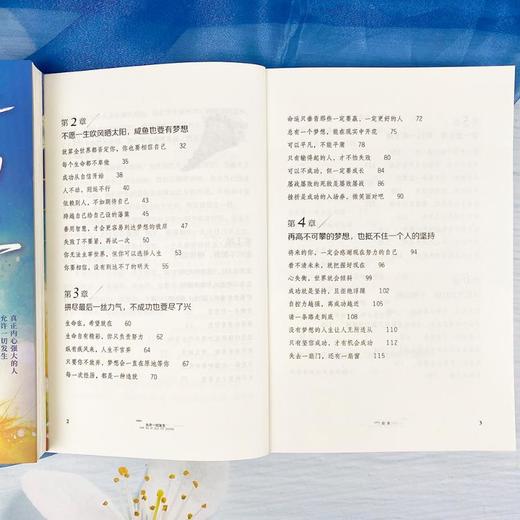 真正内心强大的人
允许一切发生
第2章
不愿一生吹风晒太阳,咸鱼也要有梦想
就算全世界都否定你,你也要相信自己 32
每个生命都不卑微 35
成功从自信开始 38
人不动,则运不行 40
依赖别人,不如期待自己 43
跨越自己给自己设的藩篱 45
善用智慧,才会更容易到达梦想的彼岸 47
失败了不要紧,再试一次 50
你无法主宰世界,但你可以选择人生 53
你要相信,没有到达不了的明天 55
第3章
拼尽最后一丝力气,不成功也要尽了兴
生命在,希望就在 60
生命自有精彩,你只负责努力 62
纵有疾风来,人生不言弃 64
只要你不放弃,梦想会一直在原地等你 67
每一次经历,都是一种造就 70
2
允许一切发生
命运只垂青那些一定要赢、一定要更好的人 72
总有一个梦想,能在现实中开花 75
可以平凡,不能平庸 77
只有输得起的人,才不怕失败 80
可以不成功,但一定要成长 84
屡战屡败的死敌是屡败屡战 86
挫折是成功的入场券,微笑面对吧 90
第4章
再高不可攀的梦想,也抵不住一个人的坚持
将来的你,一定会感谢现在努力的自己 94
看不清未来,就把握好现在 96
心失衡,世界就会倾斜 99
成功就是坚持,且把炮详醒
自控力越强,离成功越近 105
请一条路走到底 108
没有梦想的人生让人无所适从 110
只有坚信成功,才有机会成功 112
失去一扇门,还有一扇窗 115
目录
3